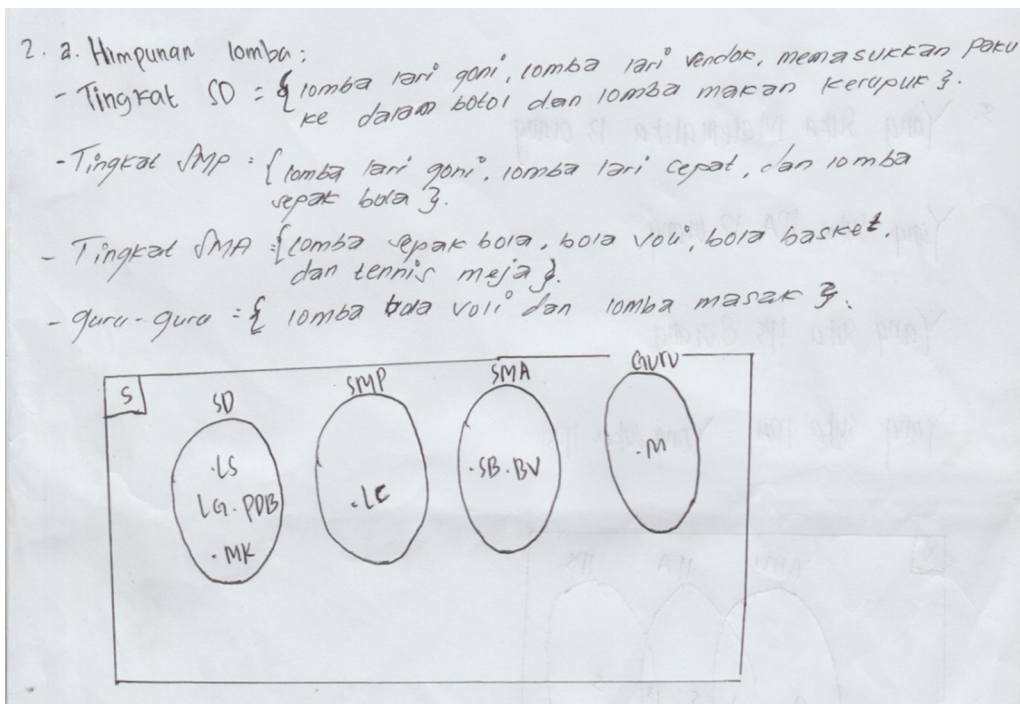 2. a. Himpunan lomba :
- Tingkat SD = { lomba lari goni, lomba lari sendok, memasukkan paku
ke dalam botol dan lomba makan kerupuk }.
- Tingkat SMP = { lomba lari goni, lomba lari cepat, dan lomba
sepak bola }.
- Tingkat SMA = { lomba sepak bola, bola voli, bola basket,
dan tennis meja }.
- guru-guru = { lomba bola voli dan lomba masak }.
S
SD SMP SMA Guru
.LS
LG .PDB
.MK
.LC
.SB .BV
.M